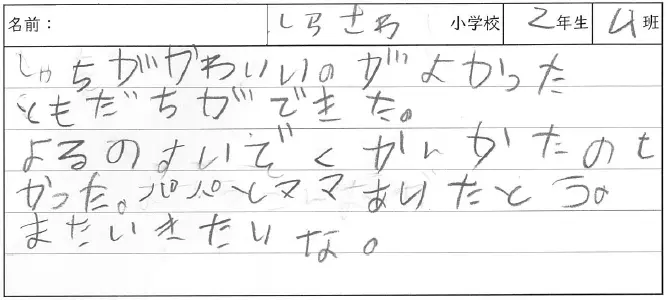 名前： しらさわ 小学校 2年生 4班
しゃちがかわいいのがよかった
ともだちができた。
よるのすいぞくかんがたのし
かった。パパとママありがとう。
またいきたいな。